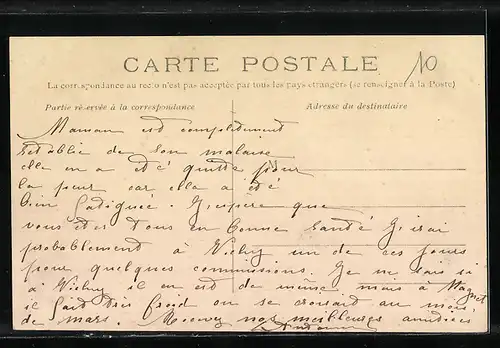 CARTE POSTALE
10
La correspondance au recto n'est pas acceptée par tous les pays étrangers (se renseigner à la Poste)
Partie réservée à la correspondance
Adresse du destinataire
Maman est complètement
rétablie de son malaise
elle en a été quitte pour
la peur car elle a été
bien fatiguée. J'espère que
vous êtes tous en bonne santé J'irai
probablement à Vichy un de ces jours
pour quelques commissions. Je ne sais si
à Vichy il en est de même mais à Magnet
il fait très froid on se croirait au mois
de mars. Recevez nos meilleures amitiés